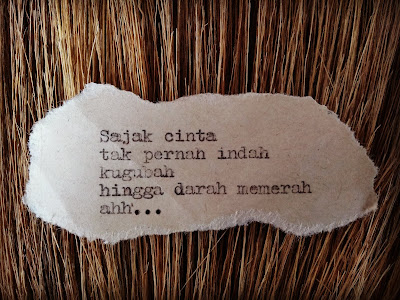 Sajak cinta
tak pernah indah
kugubah
hingga darah memerah
ahh...